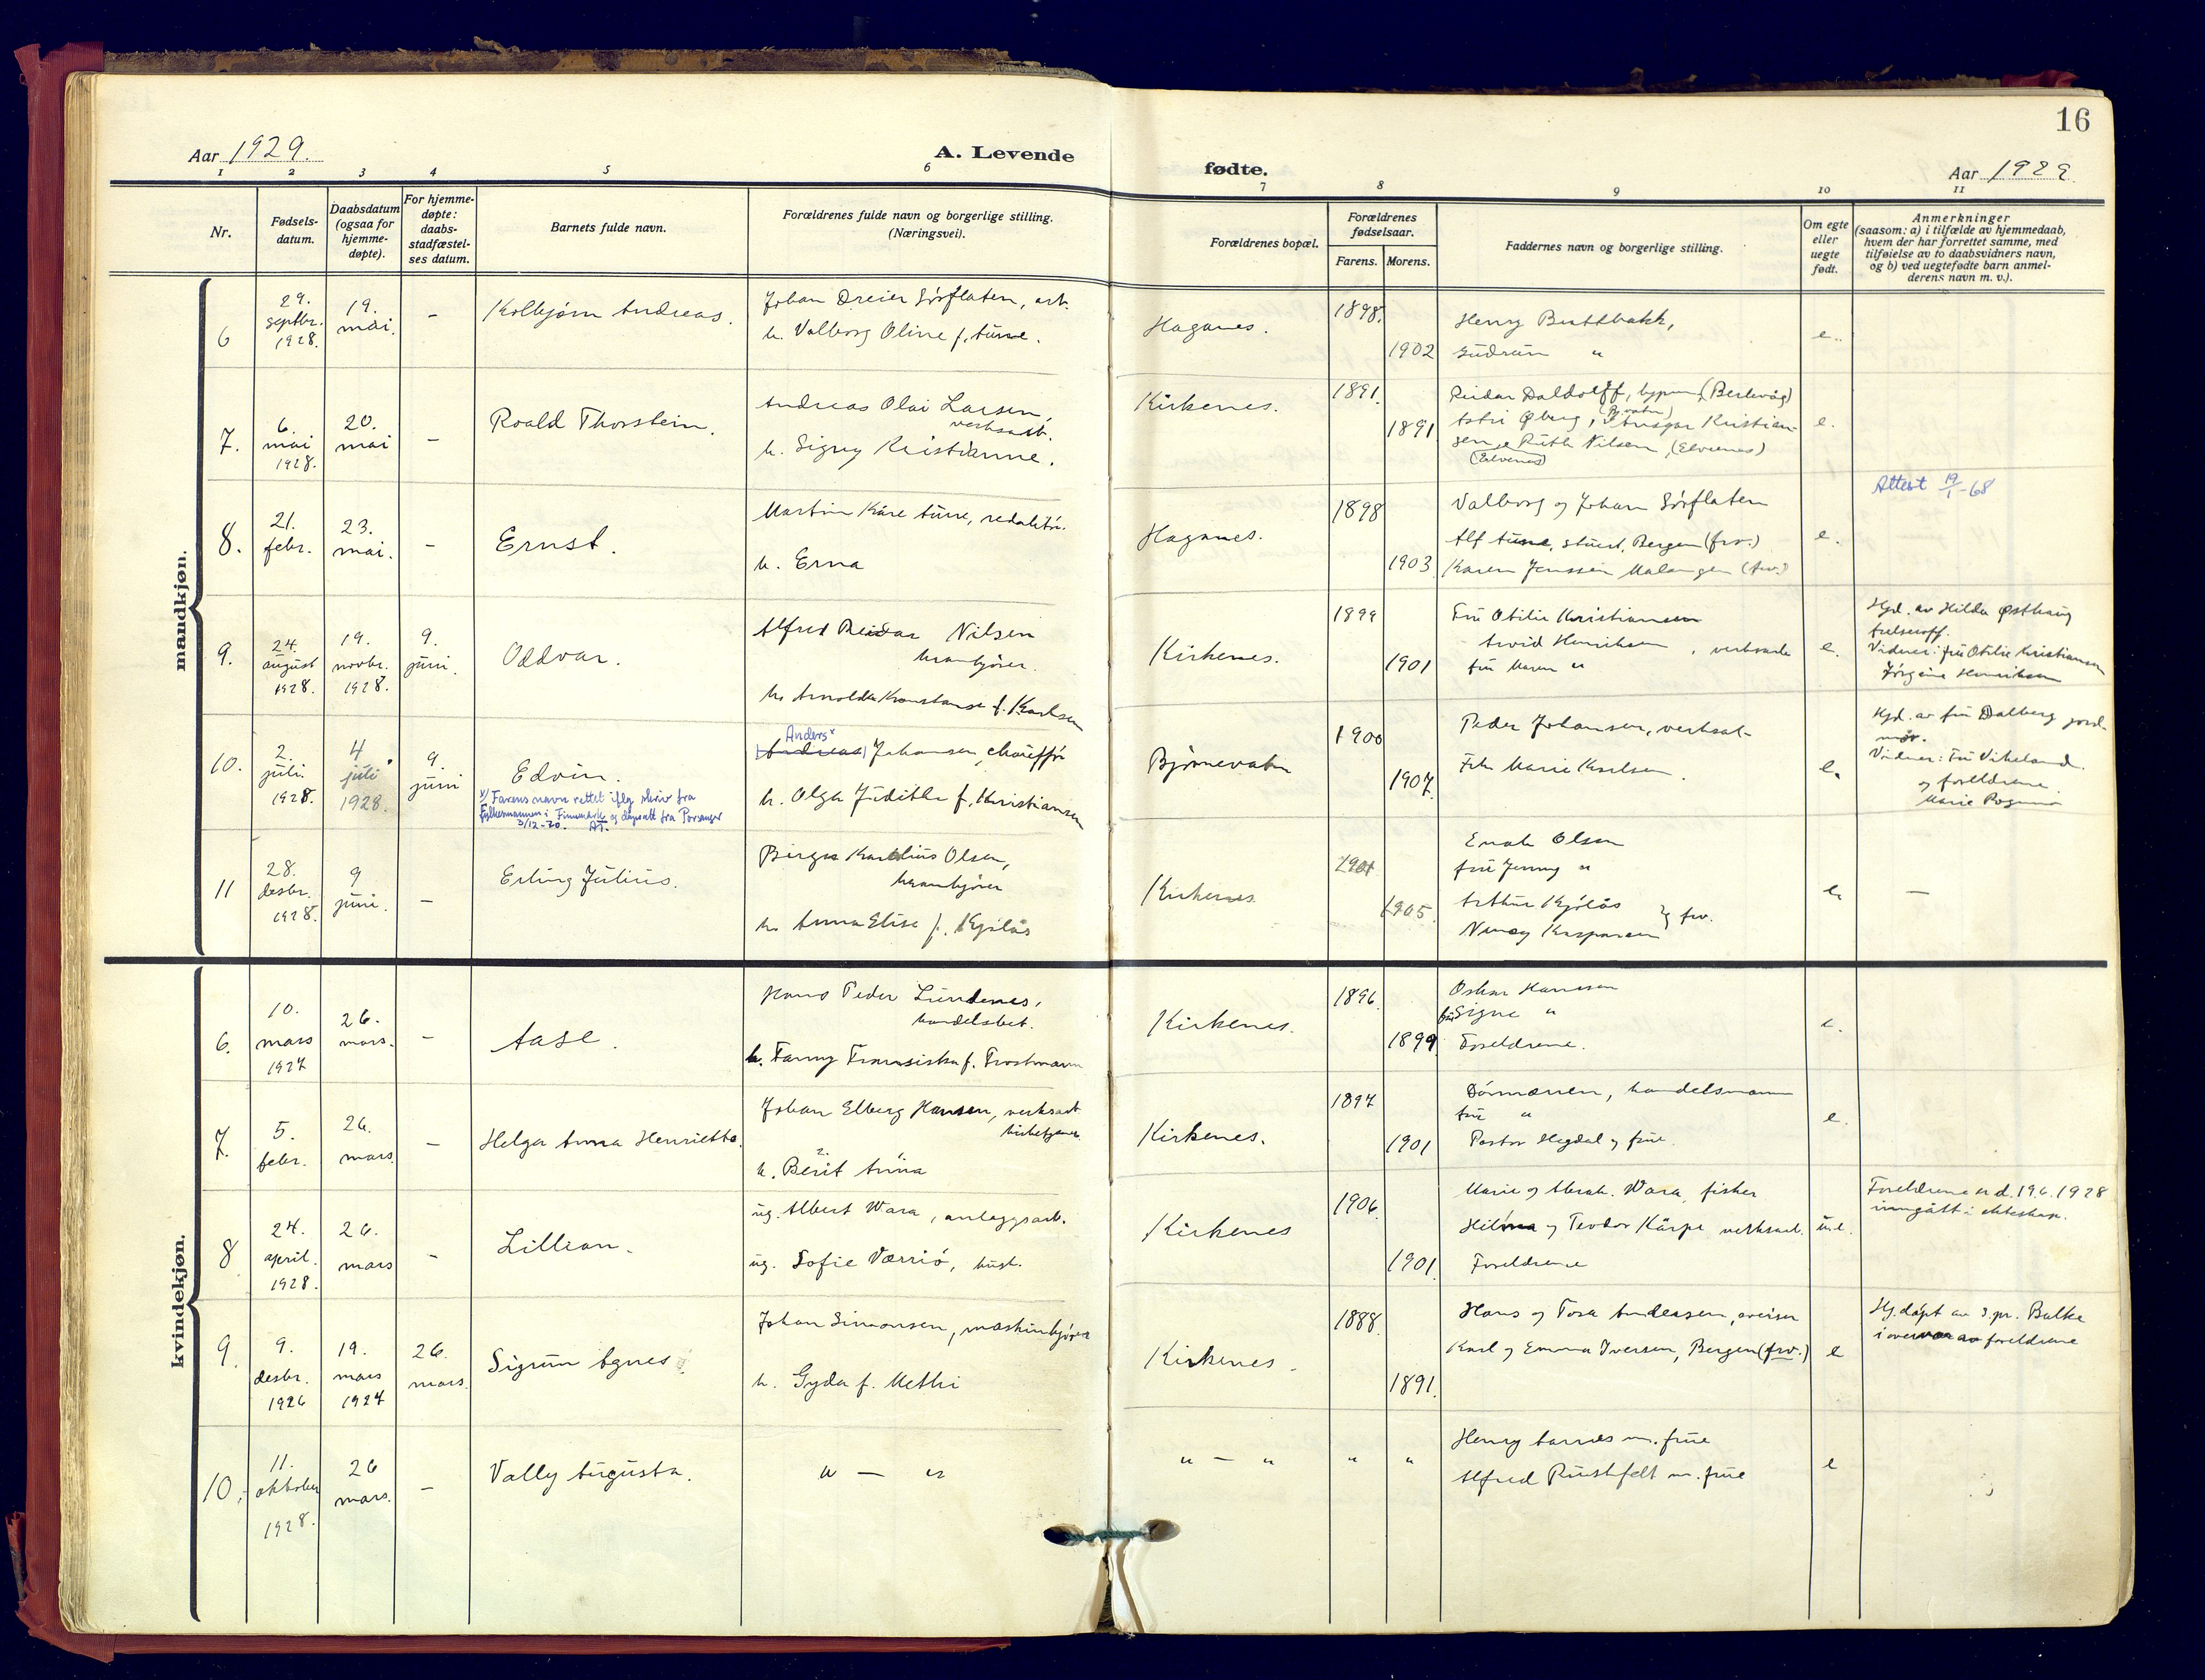 16
Aar 1929.
A. Levende fødte.
Aar 1929.
1 2 3 4 5 6 7 8 9 10 11
Nr.
Fødsels-
datum.
Daabsdatum
(ogsaa for
hjemme-
døpte).
For hjemme-
døpte:
daabs-
stadfæstel-
ses datum.
Barnets fulde navn.
Forældrenes fulde navn og borgerlige stilling.
(Næringsvei).
Forældrenes bopæl.
Forældrenes
fødselsaar.
Farens. Morens.
Faddernes navn og borgerlige stilling.
Om egte
eller
uegte
født.
Anmerkninger
(saasom: a) i tilfælde av hjemmedaab,
hvem der har forrettet samme, med
tilføielse av to daabsvidners navn,
og b) ved uegtefødte barn anmel-
derens navn m. v.).
mandkjøn.
6
29.
septbr.
1928.
19.
mai.
-
Kolbjørn Andreas.
Johan Dreier Sørflaten, arb.
h. Valborg Oline f. Aune.
Haganes.
1898.
1902
Henry Brattbakk,
Gudrun "
e.
7.
6.
mai
1928.
20.
mai
-
Roald Thorstein.
Andreas Olai Larsen,
verksarb.
h. Signy Kristianne.
Kirkenes.
1891.
1891
Reidar Daldolff, (Berlevåg)
Astri Øberg, Ansgar Kristian-
sen, Ruth Nilsen, (Elvenes)
(Elvenes)
e.
8.
21.
febr.
23.
mai.
-
Ernst.
Martin Kåre Aune, redaktør.
h. Erna
Haganes.
1898
1903
Valborg og Johan Sørflaten
Alf Aune, stuert, Bergen (frv.)
Karen Janssen Malangen (frv.)
e.
Attest 19/1-68
9.
24.
august
1928.
19.
novbr.
1928.
9.
juni.
Oddvar.
Alfred Reidar Nilsen
krankjører.
h. Arnolda Konstanse f. Karlsen
Kirkenes.
1899
1901
Fru Otilie Kristiansen
Arvid Henriksen, verksarb
fru Maren "
e.
Hjd. av Hilda Østhaug
frelsesoff.
Vidner: fru Otilie Kristiansen
Jørgine Henriksen
10.
2.
juli.
1928.
4
juli
1928.
9.
juni
Edvin.
x) Farens navn rettet iflg skriv fra
Fylkesmannen i Finnmark og dåpsatt fra Porsanger
3/12-70. AT.
Anders x
(Andreas) Johansen, chauffør
h. Olga Judithe f. Kristiansen
Bjørnevatn
1900
1907.
Peder Johansen, verksar-
Frk Marie Karlsen.
e.
Hjd. av fru Dalberg jord-
mor.
Vidner: Fru Vikeland
og foreldrene.
Marie
11
28.
desbr.
1928.
9
juni.
-
Erling Julius.
Birger Kornelius Olsen,
krankjører
h. Anna Elise f. Kjølås
Kirkenes
1901
1905.
Enok Olsen
fru Jenny "
Arthur Kjølås
Nancy Kaspersen } frv.
e.
-
kvindekjøn.
6.
10.
mars
1927
26.
mars.
-
Aase.
Hans Peder Lundenes,
handelsbet.
h. Fanny Fransiska f. Trostmann
Kirkenes.
1896
1899
Oskar Hansen
fru Signe "
Foreldrene.
e.
7.
5.
febr.
26.
mars.
-
Helga Anna Henriette.
Johan Elberg Hansen, verksarb
kirketjener
h. Berit Anna
Kirkenes.
1897
1901
Dørmænen, handelsmann
fru "
Pastor Hegdal og frue.
e.
8
24.
april.
1928.
26.
mars
-
Lillian.
ug. Albert Wara, anleggsarb.
ug. Sofie Værriö, hush.
Kirkenes
1906.
1901.
Marie og Abrah. Wara, fisker
Hilma og Teodor Kärpe verksarb.
Foreldrene
u.e.
Foreldrene er d. 19.6.1928
inngått i ekteskap.
9.
9.
desbr.
1926
19.
mars
1927
26.
mars.
Sigrun Agnes.
Johan Simonsen, maskinkjører
h. Gyda f. Methi
Kirkenes.
1888.
1891.
Hans og Tora Andersen, sveiser
Karl og Emma Iversen, Bergen (frv.)
e
Hj. døpt av s.pr. Balke
i overvær av foreldrene
10.
11.
oktober
1928.
26
mars.
-
Vally Augusta.
" — "
" — "
"
"
Henry Aarnes m. frue
Alfred Rushfelt m. frue
e